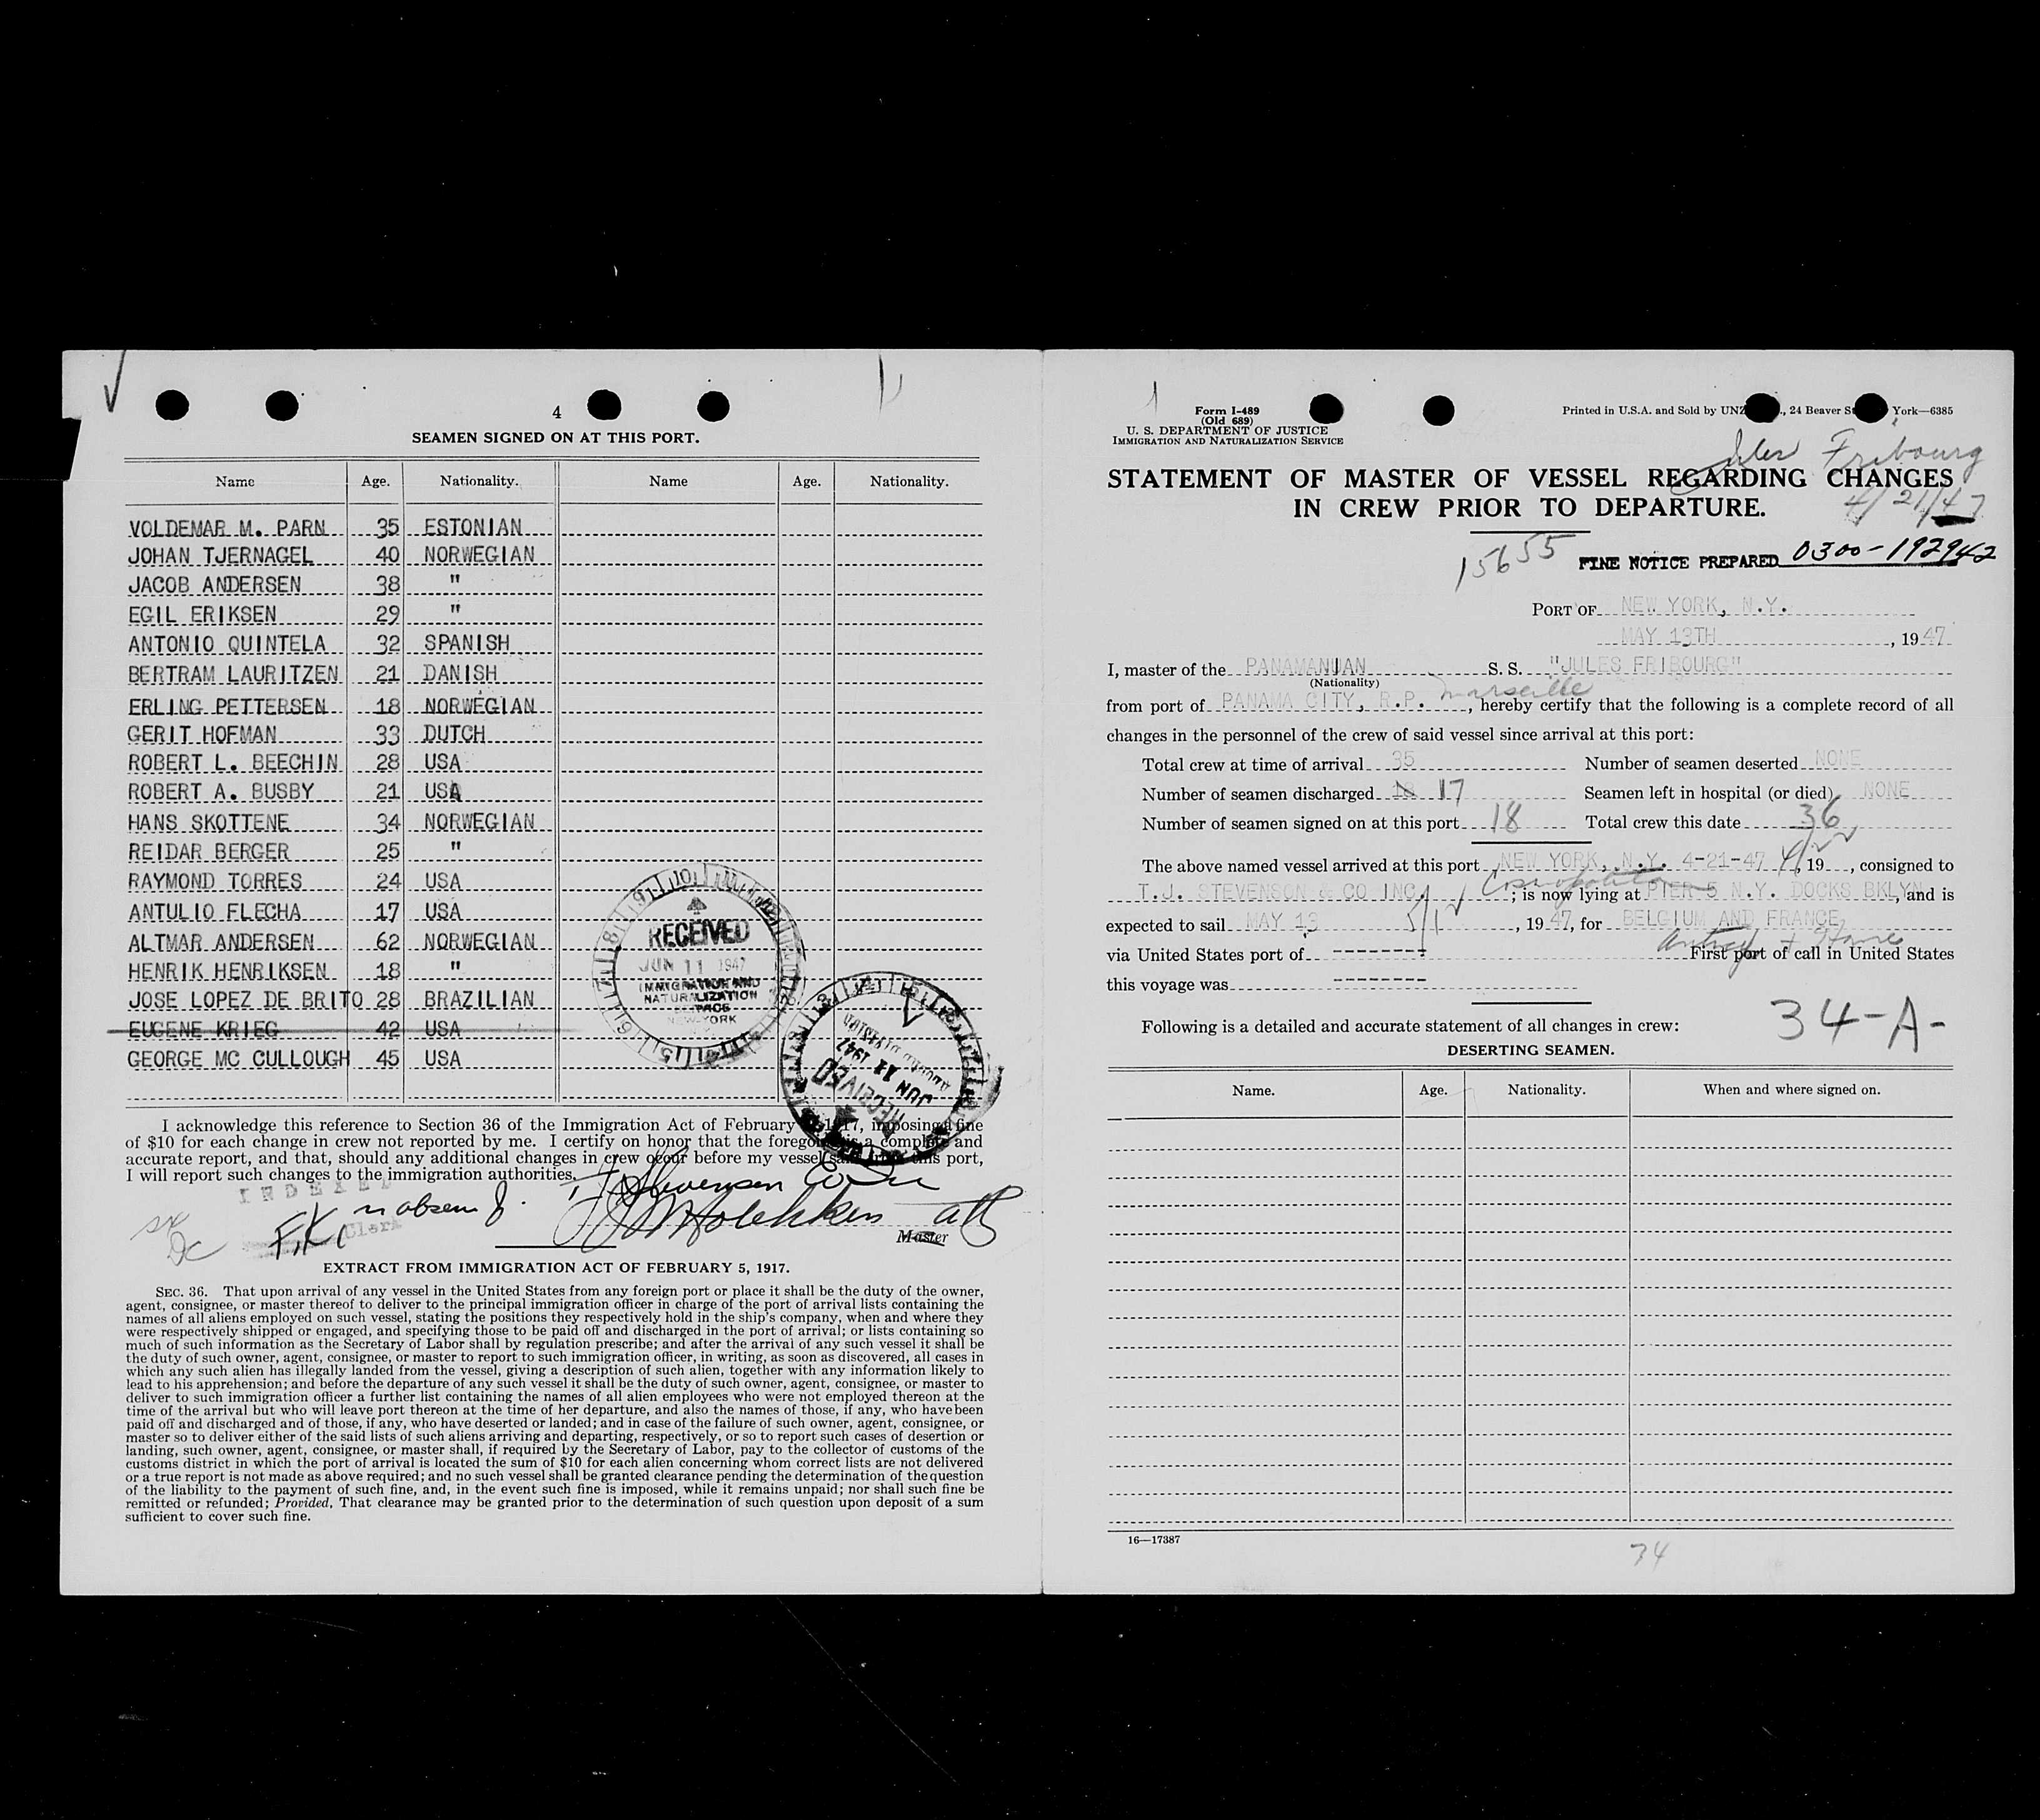 4
SEAMEN SIGNED ON AT THIS PORT.
Name Age. Nationality. Name Age. Nationality.
VOLDEMAR M. PARN 35 ESTONIAN
JOHAN TJERNAGEL 40 NORWEGIAN
JACOB ANDERSEN 38 "
EGIL ERIKSEN 29 "
ANTONIO QUINTELA 32 SPANISH
BERTRAM LAURITZEN 21 DANISH
ERLING PETTERSEN 18 NORWEGIAN
GERIT HOFMAN 33 DUTCH
ROBERT L. BEECHIN 28 USA
ROBERT A. BUSBY 21 USA
HANS SKOTTENE 34 NORWEGIAN
REIDAR BERGER 25 "
RAYMOND TORRES 24 USA
ANTULIO FLECHA 17 USA
ALTMAR ANDERSEN 62 NORWEGIAN
HENRIK HENRIKSEN 18 "
JOSE LOPEZ DE BRITO 28 BRAZILIAN
EUGENE KRIEG 42 USA
GEORGE MC CULLOUGH 45 USA
RECEIVED
JUN 11 1947
IMMIGRATION AND
NATURALIZATION
SERVICE
NEW YORK
RECEIVED
JUN 11 1947
I acknowledge this reference to Section 36 of the Immigration Act of February 5, 1917, imposing a fine
of $10 for each change in crew not reported by me. I certify on honor that the foregoing is a complete and
accurate report, and that, should any additional changes in crew occur before my vessel sails from this port,
I will report such changes to the immigration authorities.
INDEXED
Clerk
T J Stevenson Co Inc
Master
EXTRACT FROM IMMIGRATION ACT OF FEBRUARY 5, 1917.
SEC. 36. That upon arrival of any vessel in the United States from any foreign port or place it shall be the duty of the owner,
agent, consignee, or master thereof to deliver to the principal immigration officer in charge of the port of arrival lists containing the
names of all aliens employed on such vessel, stating the positions they respectively hold in the ship's company, when and where they
were respectively shipped or engaged, and specifying those to be paid off and discharged in the port of arrival; or lists containing so
much of such information as the Secretary of Labor shall by regulation prescribe; and after the arrival of any such vessel it shall be
the duty of such owner, agent, consignee, or master to report to such immigration officer, in writing, as soon as discovered, all cases in
which any such alien has illegally landed from the vessel, giving a description of such alien, together with any information likely to
lead to his apprehension; and before the departure of any such vessel it shall be the duty of such owner, agent, consignee, or master to
deliver to such immigration officer a further list containing the names of all alien employees who were not employed thereon at the
time of the arrival but who will leave port thereon at the time of her departure, and also the names of those, if any, who have been
paid off and discharged and of those, if any, who have deserted or landed; and in case of the failure of such owner, agent, consignee, or
master so to deliver either of the said lists of such aliens arriving and departing, respectively, or so to report such cases of desertion or
landing, such owner, agent, consignee, or master shall, if required by the Secretary of Labor, pay to the collector of customs of the
customs district in which the port of arrival is located the sum of $10 for each alien concerning whom correct lists are not delivered
or a true report is not made as above required; and no such vessel shall be granted clearance pending the determination of the question
of the liability to the payment of such fine, and, in the event such fine is imposed, while it remains unpaid; nor shall such fine be
remitted or refunded; Provided, That clearance may be granted prior to the determination of such question upon deposit of a sum
sufficient to cover such fine.
Form I-489
(Old 689)
U. S. DEPARTMENT OF JUSTICE
IMMIGRATION AND NATURALIZATION SERVICE
Printed in U.S.A. and Sold by UNZ , 24 Beaver S York—6385
Jules Fribourg
STATEMENT OF MASTER OF VESSEL REGARDING CHANGES
4/21/47
IN CREW PRIOR TO DEPARTURE.
15655 FINE NOTICE PREPARED 0300-192942
PORT OF NEW YORK, N.Y.
MAY 13TH, 1947
I, master of the PANAMANIAN S. S. "JULES FRIBOURG"
(Nationality)
from port of PANAMA CITY, R.P. Marseille, hereby certify that the following is a complete record of all
changes in the personnel of the crew of said vessel since arrival at this port:
Total crew at time of arrival 35 Number of seamen deserted NONE
Number of seamen discharged 18 17 Seamen left in hospital (or died) NONE
Number of seamen signed on at this port 18 Total crew this date 36
The above named vessel arrived at this port NEW YORK, N.Y. 4-21-47, 19 , consigned to
T.J. STEVENSON & CO INC Cosmopolitan; is now lying at PIER 5 N.Y. DOCKS BKLYN, and is
expected to sail MAY 13, 1947, for BELGIUM AND FRANCE
via United States port of -------- First port of call in United States
this voyage was --------
Following is a detailed and accurate statement of all changes in crew: 34-A-
DESERTING SEAMEN.
Name. Age. Nationality. When and where signed on.
16—17387
34